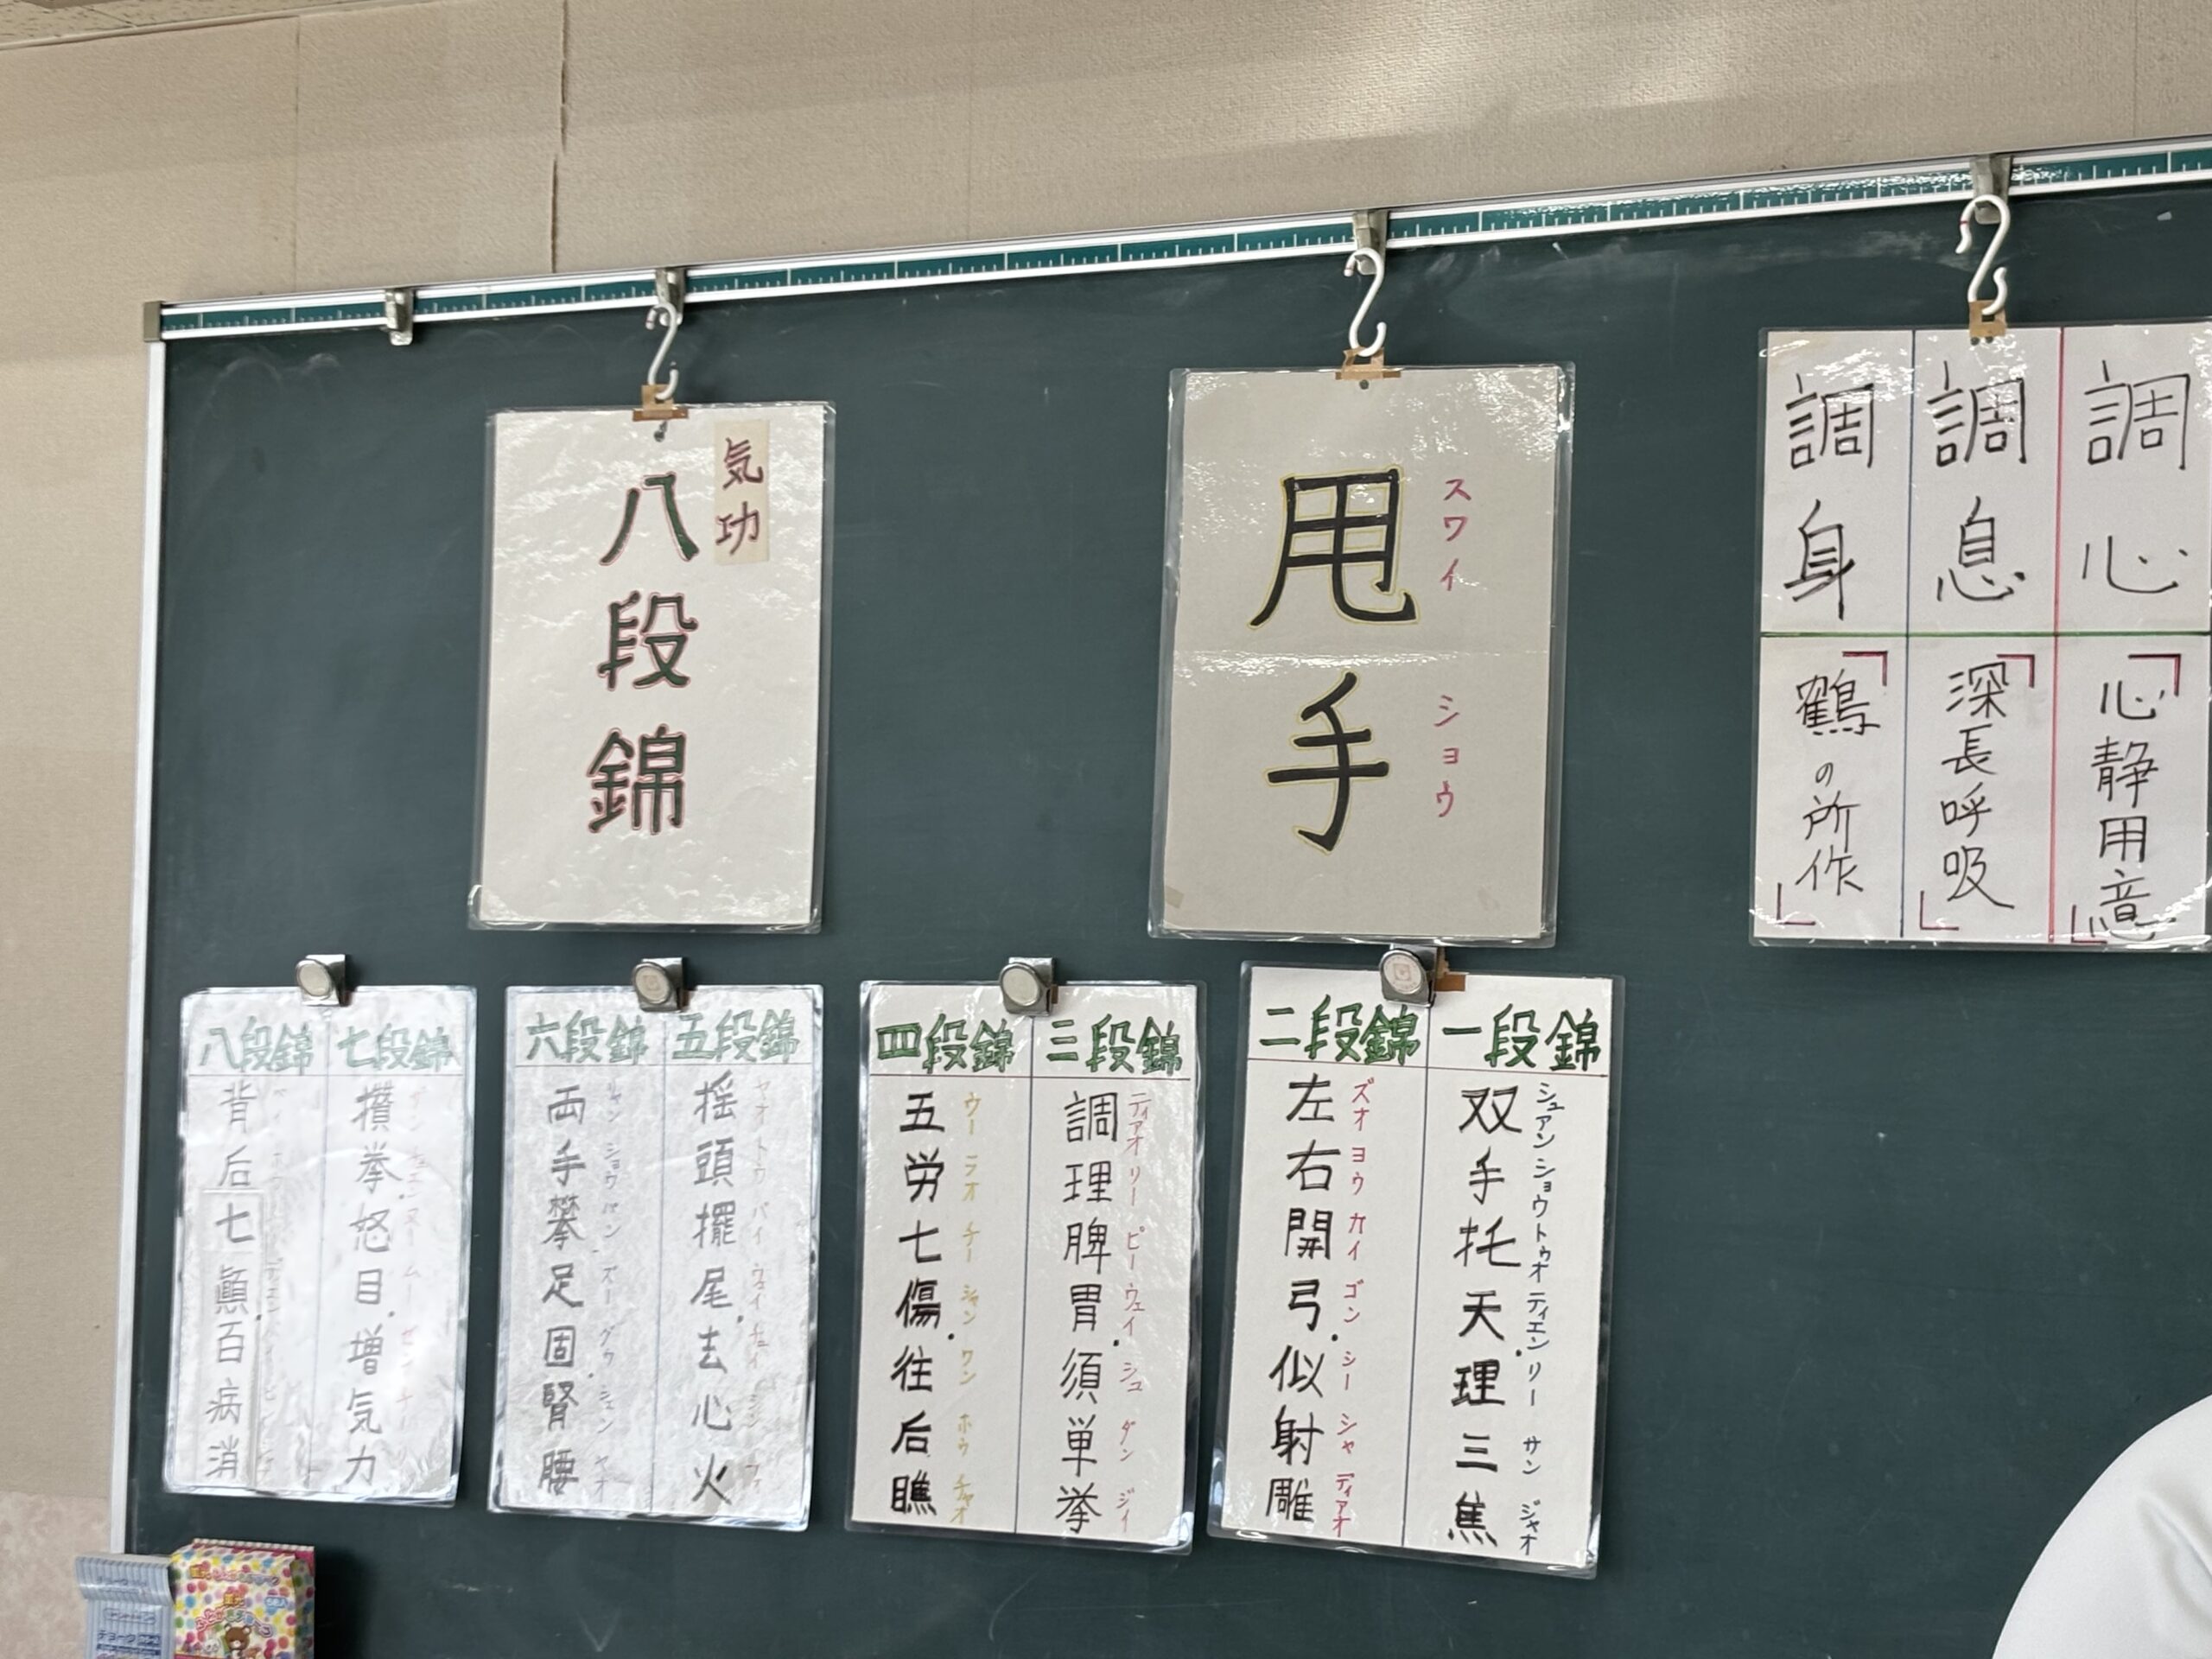 調心
「心静用意」
調息
「深長呼吸」
調身
「鶴の所作」
甩手
スワイ ショウ
気功
八段錦
一段錦
双手托天.理三焦
シュアン ショウ トゥオ ティエン リー サン ジャオ
二段錦
左右開弓.似射雕
ズオ ヨウ カイ ゴン シー シャ ディアオ
三段錦
調理脾胃.須単挙
ティアオ リー ピー ウェイ シュ ダン ジィ
四段錦
五労七傷.往后瞧
ウー ラオ チー シャン ワン ホウ チャオ
五段錦
揺頭擺尾.去心火
ヤオ トウ バイ ウェイ
六段錦
両手攀足固.腎腰
ショウ パン ズー グウ シェン ヤオ
七段錦
攢拳.怒目.増気力
八段錦
背后七顛.百病消
チョーク